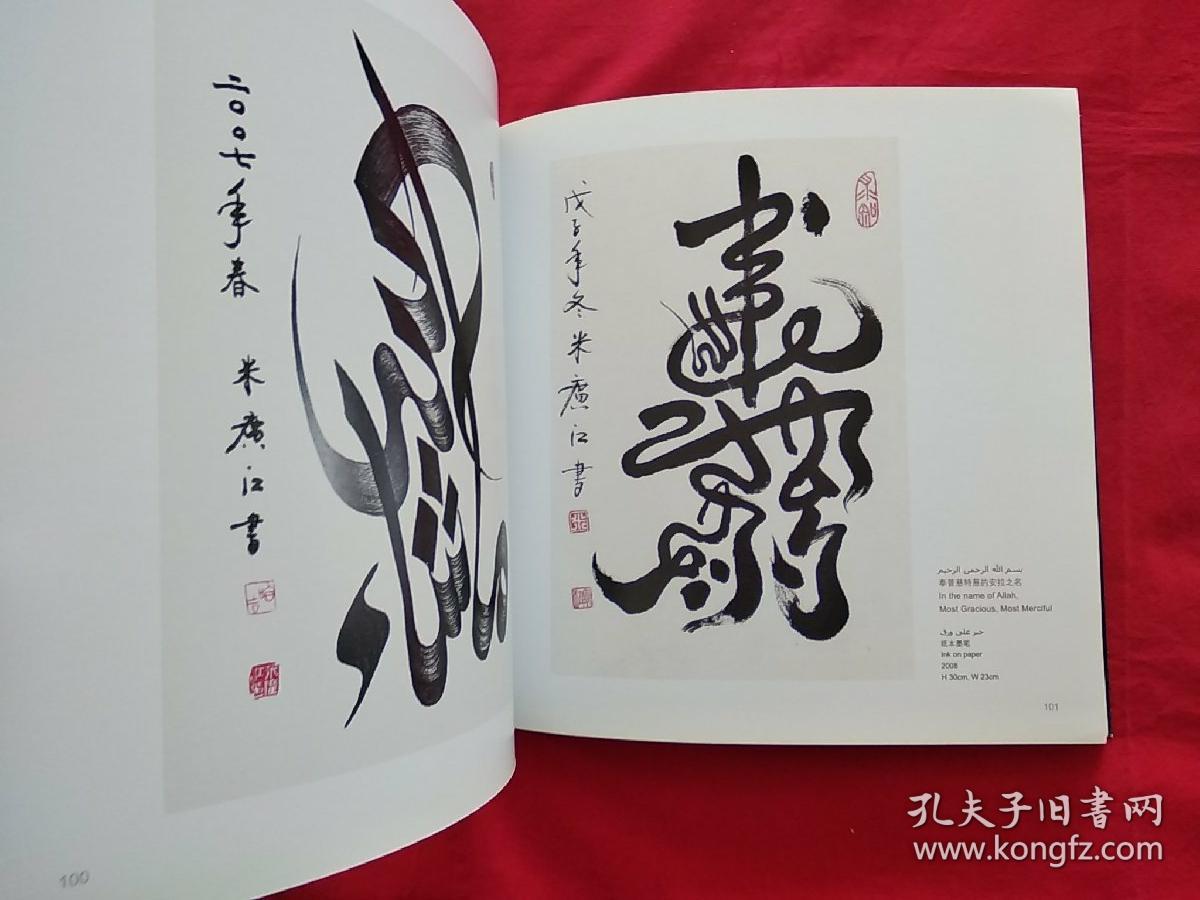 二〇〇七年春
米廣江書
100
戊子年冬米廣江書
بسم الله الرحمن الرحيم
奉普慈特慈的安拉之名
In the name of Allah,
Most Gracious, Most Merciful
حبر على ورق
纸本墨笔
Ink on paper
2008
H 30cm, W 23cm
101
孔夫子旧書网
www.kongfz.com